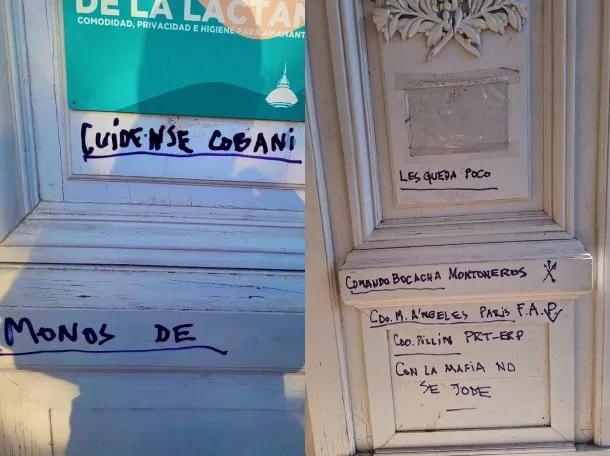 DE LA LACTAN
COMODIDAD, PRIVACIDAD E HIGIENE PARA AMAMANT
CUIDENSE COBANI
MONOS DE
LES QUEDA POCO
COMANDO BOCACHA MONTONEROS
CDO. M. ANGELES PARIS F.A.P.
CDO. PILLIN PRT-ERP
CON LA MAFIA NO
SE JODE